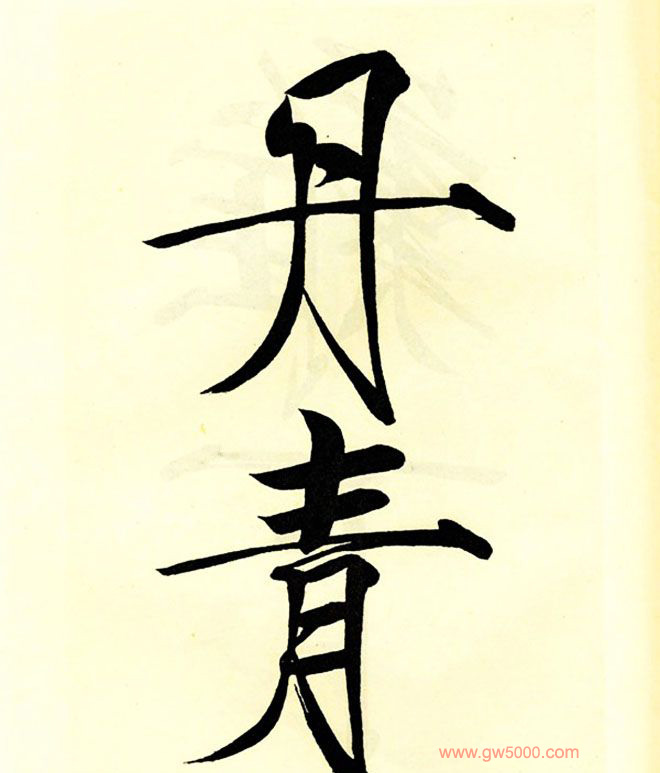 丹
青
www.gw5000.com